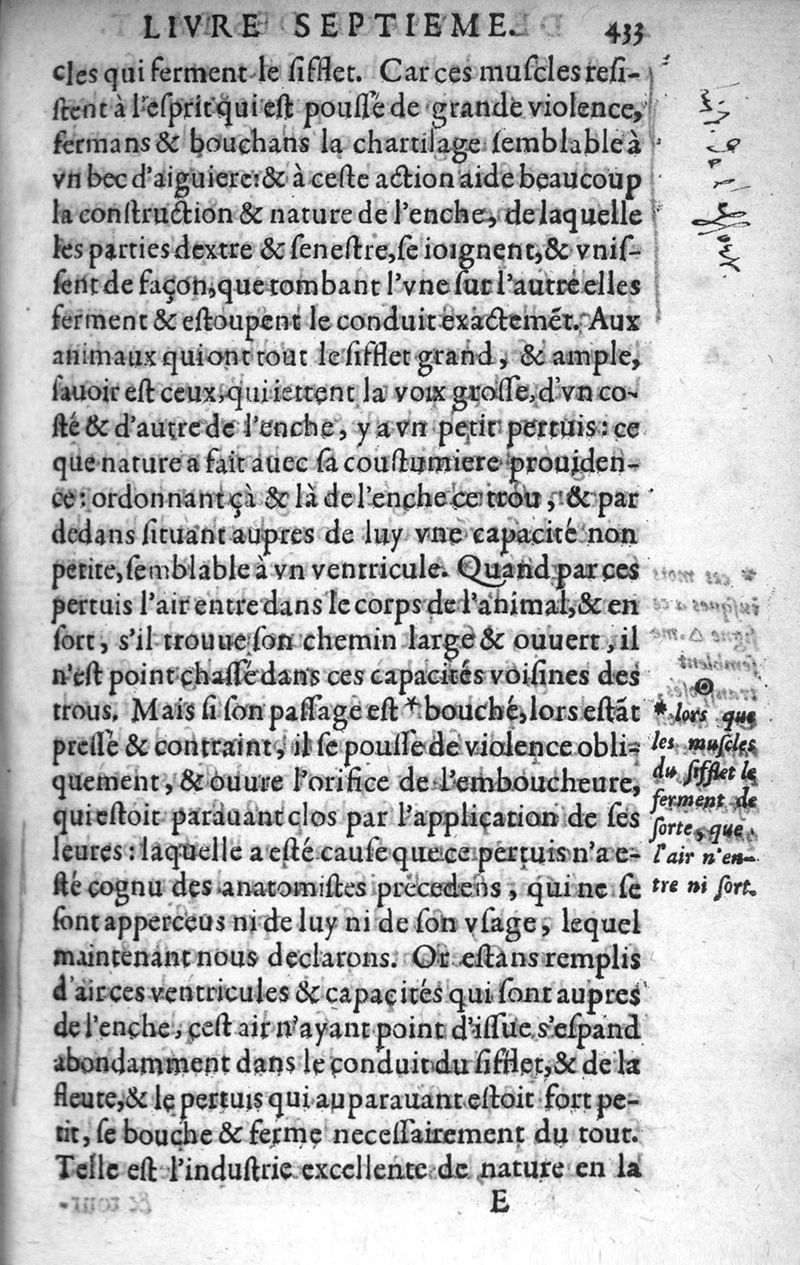 LIVRE SEPTIEME. 433
cles qui ferment le ſifflet. Car ces muſcles reſi-
ſtent à l'eſprit qui eſt pouſſé de grande violence,
fermans & bouchans la chartilage ſemblable à
vn bec d'aiguiere: & à ceſte action aide beaucoup
la conſtruction & nature de l'enche, de laquelle
les parties dextre & ſeneſtre, ſe ioignent, & vniſ-
ſent de façon, que tombant l'vne ſur l'autre elles
ferment & eſtoupent le conduit exactemẽt. Aux
animaux qui ont tout le ſifflet grand, & ample,
ſauoir eſt ceux, qui iettent la voix groſſe, d'vn co-
ſté & d'autre de l'enche, y a vn petit pertuis: ce
que nature a fait auec ſa couſtumiere prouiden-
ce: ordonnant çà & là de l'enche ce trou, & par
dedans ſituant aupres de luy vne capacité non
petite, ſemblable à vn ventricule. Quand par ces
pertuis l'air entre dans le corps de l'animal, & en
ſort, s'il trouue ſon chemin large & ouuert, il
n'eſt point chaſſé dans ces capacités voiſines des
trous. Mais ſi ſon paſſage eſt * bouché, lors eſtãt
preſſé & contraint, il ſe pouſſe de violence obli-
quement, & ouure l'orifice de l'emboucheure,
qui eſtoit parauant clos par l'application de ſes
leures: laquelle a eſté cauſe que ce pertuis n'a e-
ſté cognu des anatomiſtes precedens, qui ne ſe
ſont apperceus ni de luy ni de ſon vſage, lequel
maintenant nous declarons. Or eſtans remplis
d'air ces ventricules & capacités qui ſont aupres
de l'enche, ceſt air n'ayant point d'iſſue s'eſpand
abondamment dans le conduit du ſifflet, & de la
fleute, & le pertuis qui auparauant eſtoit fort pe-
tit, ſe bouche & ferme neceſſairement du tout.
Telle eſt l'induſtrie excellente de nature en la
E
* lors que
les muſcles
du ſifflet le
ferment de
ſorte, que
l'air n'en-
tre ni ſort.